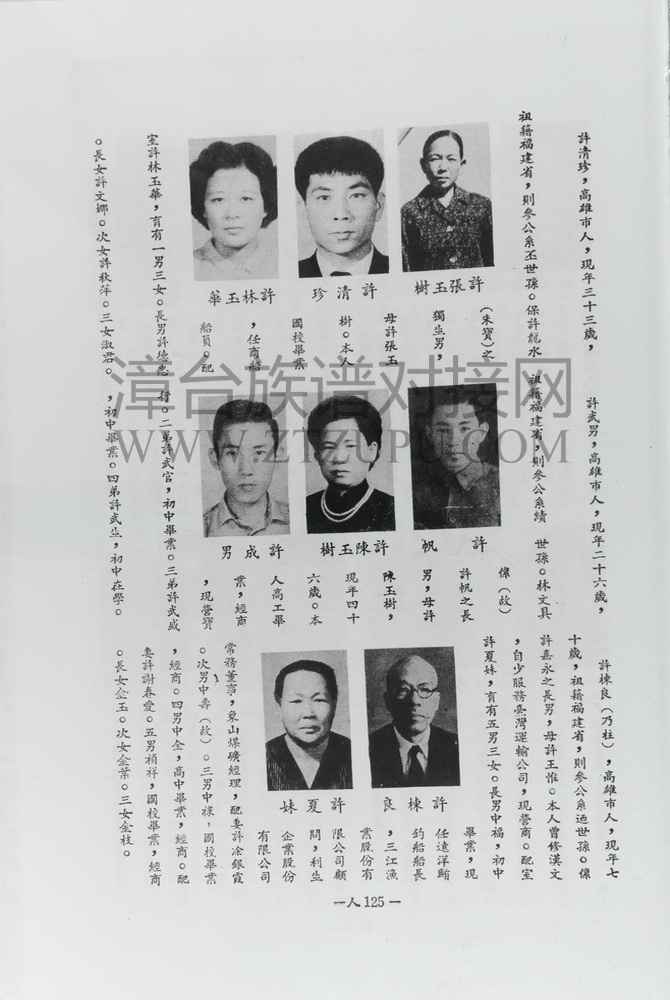 許清珍，高雄市人，現年三十三歲，
祖籍福建省，則參公系丕世孫。保許龍水
（朱寶）之
獨生男，
母許張玉
樹。本人
國校畢業
，任商船
船員。配
室許林玉華，育有一男三女。長男許德忠
。長女許文娜。次女許秋萍。三女淑君。
許張玉樹
許清珍
許林玉華
許武男，高雄市人，現年二十六歲，
祖籍福建省，則參公系績
世孫。林文具
傢（故）
許帆之長
男，母許
陳玉樹，
現年四十
六歲。本
人高工畢
業，經商
，現營寶
行。二弟許武官，初中畢業。三弟許武盛
，初中畢業。四弟許武生，初中在學。
許帆
許陳玉樹
許成男
許棟良（乃柱），高雄市人，現年七
十歲，祖籍福建省，則參公系迺世孫。傢
許嘉永之長男，母許王惟。本人曾修漢文
，自少服務臺灣運輸公司，現營商。配室
許夏妹，育有五男三女。長男中福，初中
畢業，現
任遠洋鮪
釣船船長
，三江漁
業股份有
限公司顧
問，利生
企業股份
有限公司
常務董事，象山煤礦經理，配妻許凃銀霞
。次男中壽（故）。三男中祿，國校畢業
，經商。四男中全，高中畢業，經商。配
妻許謝春愛。五男禎祥，國校畢業，經商
。長女金玉。次女金葉。三女金枝。
許棟良
許夏妹
—人125—
漳台族谱对接网
WWW.ZTZUPU.COM